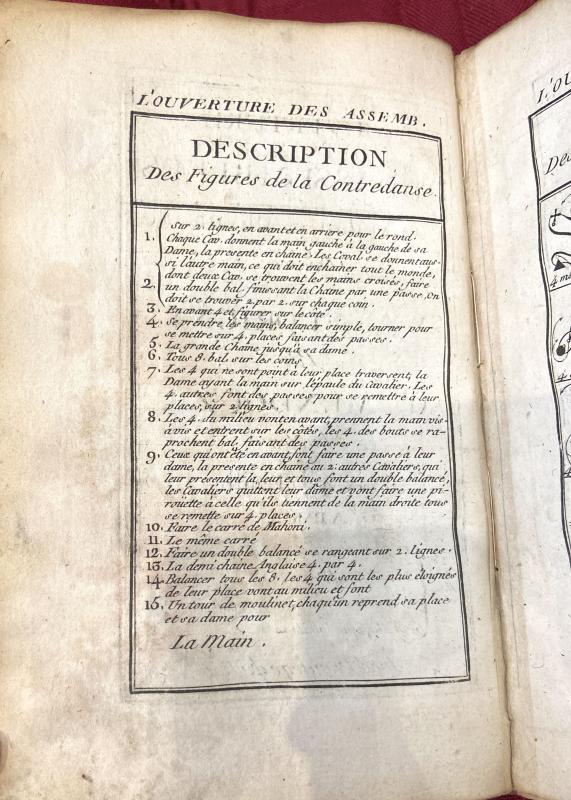 L'OUVERTURE DES ASSEMB.
DESCRIPTION
Des Figures de la Contredanse.
1. Sur 2. lignes, en avant et en arriere pour le rond.
Chaque Cav. donnent la main gauche à la gauche de sa
Dame, la presente en chaine. Les Coval. se donnent aus-
si l'autre main, ce qui doit enchainer tout le monde,
dont deux Cav. se trouvent les mains croises, faire
2. un double bal. finissant la Chaine par une passe, on
doit se trouver 2. par 2. sur chaque coin.
3. En avant 4 et figurer sur le côté.
4. Se prendre les mains, balancer simple, tourner pour
se mettre sur 4. places faisant des passes.
5. La grande Chaine jusqu'à sa dame.
6. Tous 8. bal. sur les coins
7. Les 4 qui ne sont point à leur place traversent, la
Dame ayant la main sur l'épaule du Cavalier. Les
4. autres font des passes pour se remettre à leur
places, sur 2. lignes.
8. Les 4. du milieu vont en avant, prennent la main vis-
à vis et entrent sur les côtés, les 4. des bouts se ra-
prochent bal. faisant des passes.
9. Ceux qui ont été en avant, font faire une passe à leur
dame, la presente en chaine au 2: autres Cavaliers, qui
leur présentent la leur et tous font un double balancé,
les Cavaliers quittent leur dame et vont faire une pi-
roüette à celle qu'ils tiennent de la main droite tous
se remette sur 4. places.
10. Faire le carré de Mahoni.
11. Le même carré
12. Faire un double balancé se rangeant sur 2. lignes.
13. La demi chaine Anglaise 4. par 4.
14. Balancer tous les 8. les 4 qui sont les plus éloignés
de leur place vont au milieu et font
15. Un tour de moulinet, chaqu'un reprend sa place
et sa dame pour
La Main.
L'OU
Des